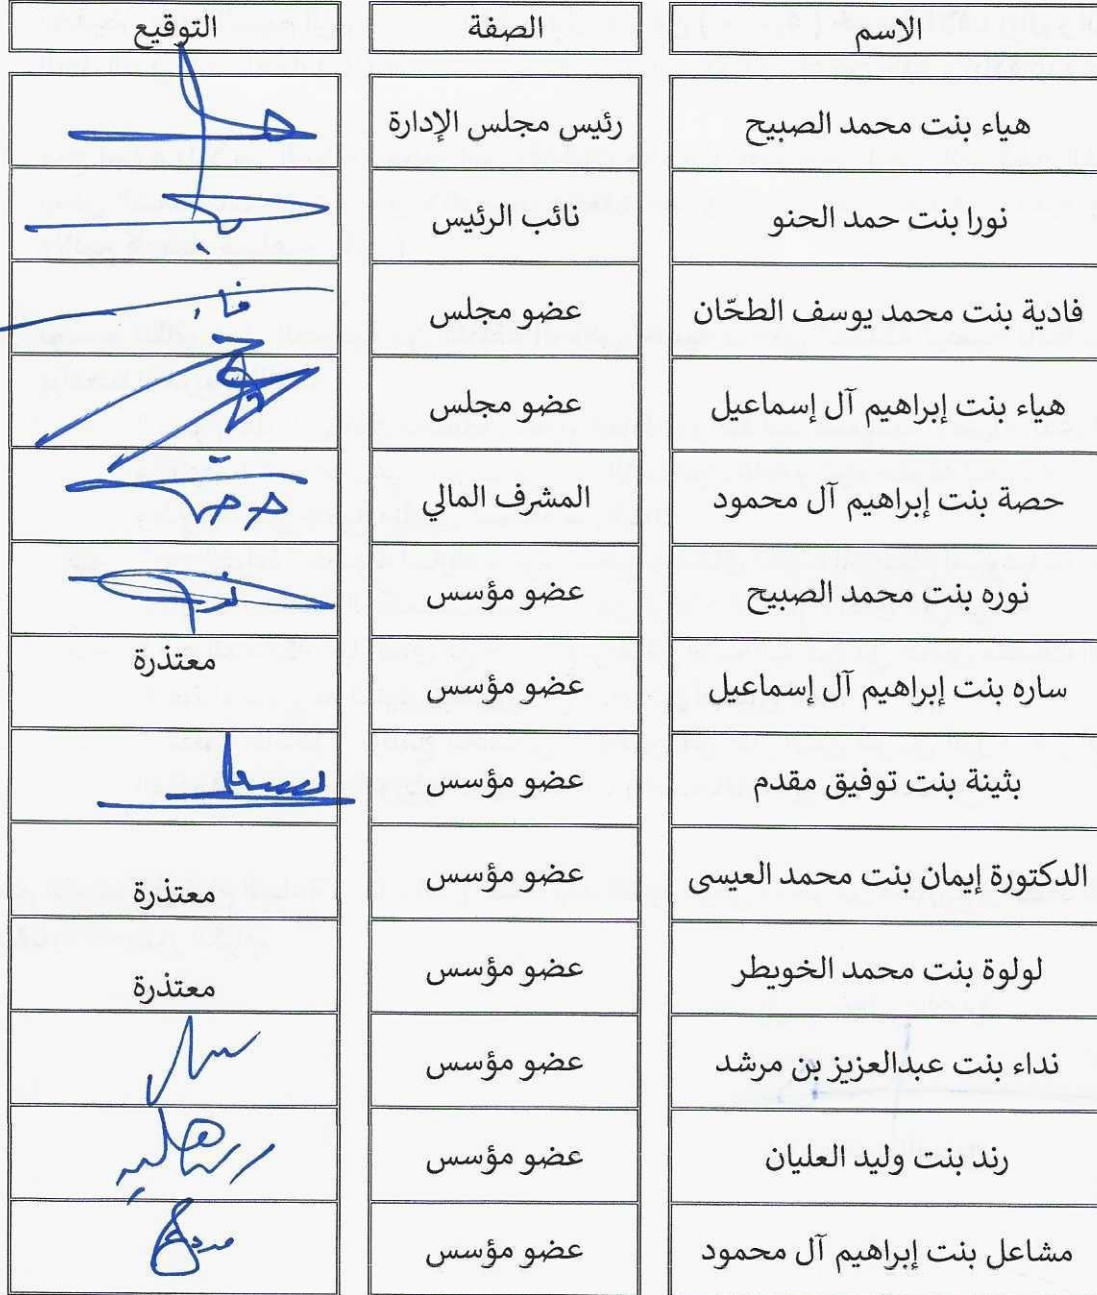 الاسم الصفة التوقيع
هياء بنت محمد الصبيح رئيس مجلس الإدارة
نورا بنت حمد الحنو نائب الرئيس
فادية بنت محمد يوسف الطحّان عضو مجلس
هباء بنت إبراهيم آل إسماعيل عضو مجلس
حصة بنت إبراهيم آل محمود المشرف المالي
نوره بنت محمد الصبيح عضو مؤسس
ساره بنت إبراهيم آل إسماعيل عضو مؤسس معتذرة
بثينة بنت توفيق مقدم عضو مؤسس
الدكتورة إيمان بنت محمد العيسى عضو مؤسس معتذرة
لولوة بنت محمد الخويطر عضو مؤسس معتذرة
نداء بنت عبدالعزيز بن مرشد عضو مؤسس
رند بنت وليد العليان عضو مؤسس
مشاعل بنت إبراهيم آل محمود عضو مؤسس